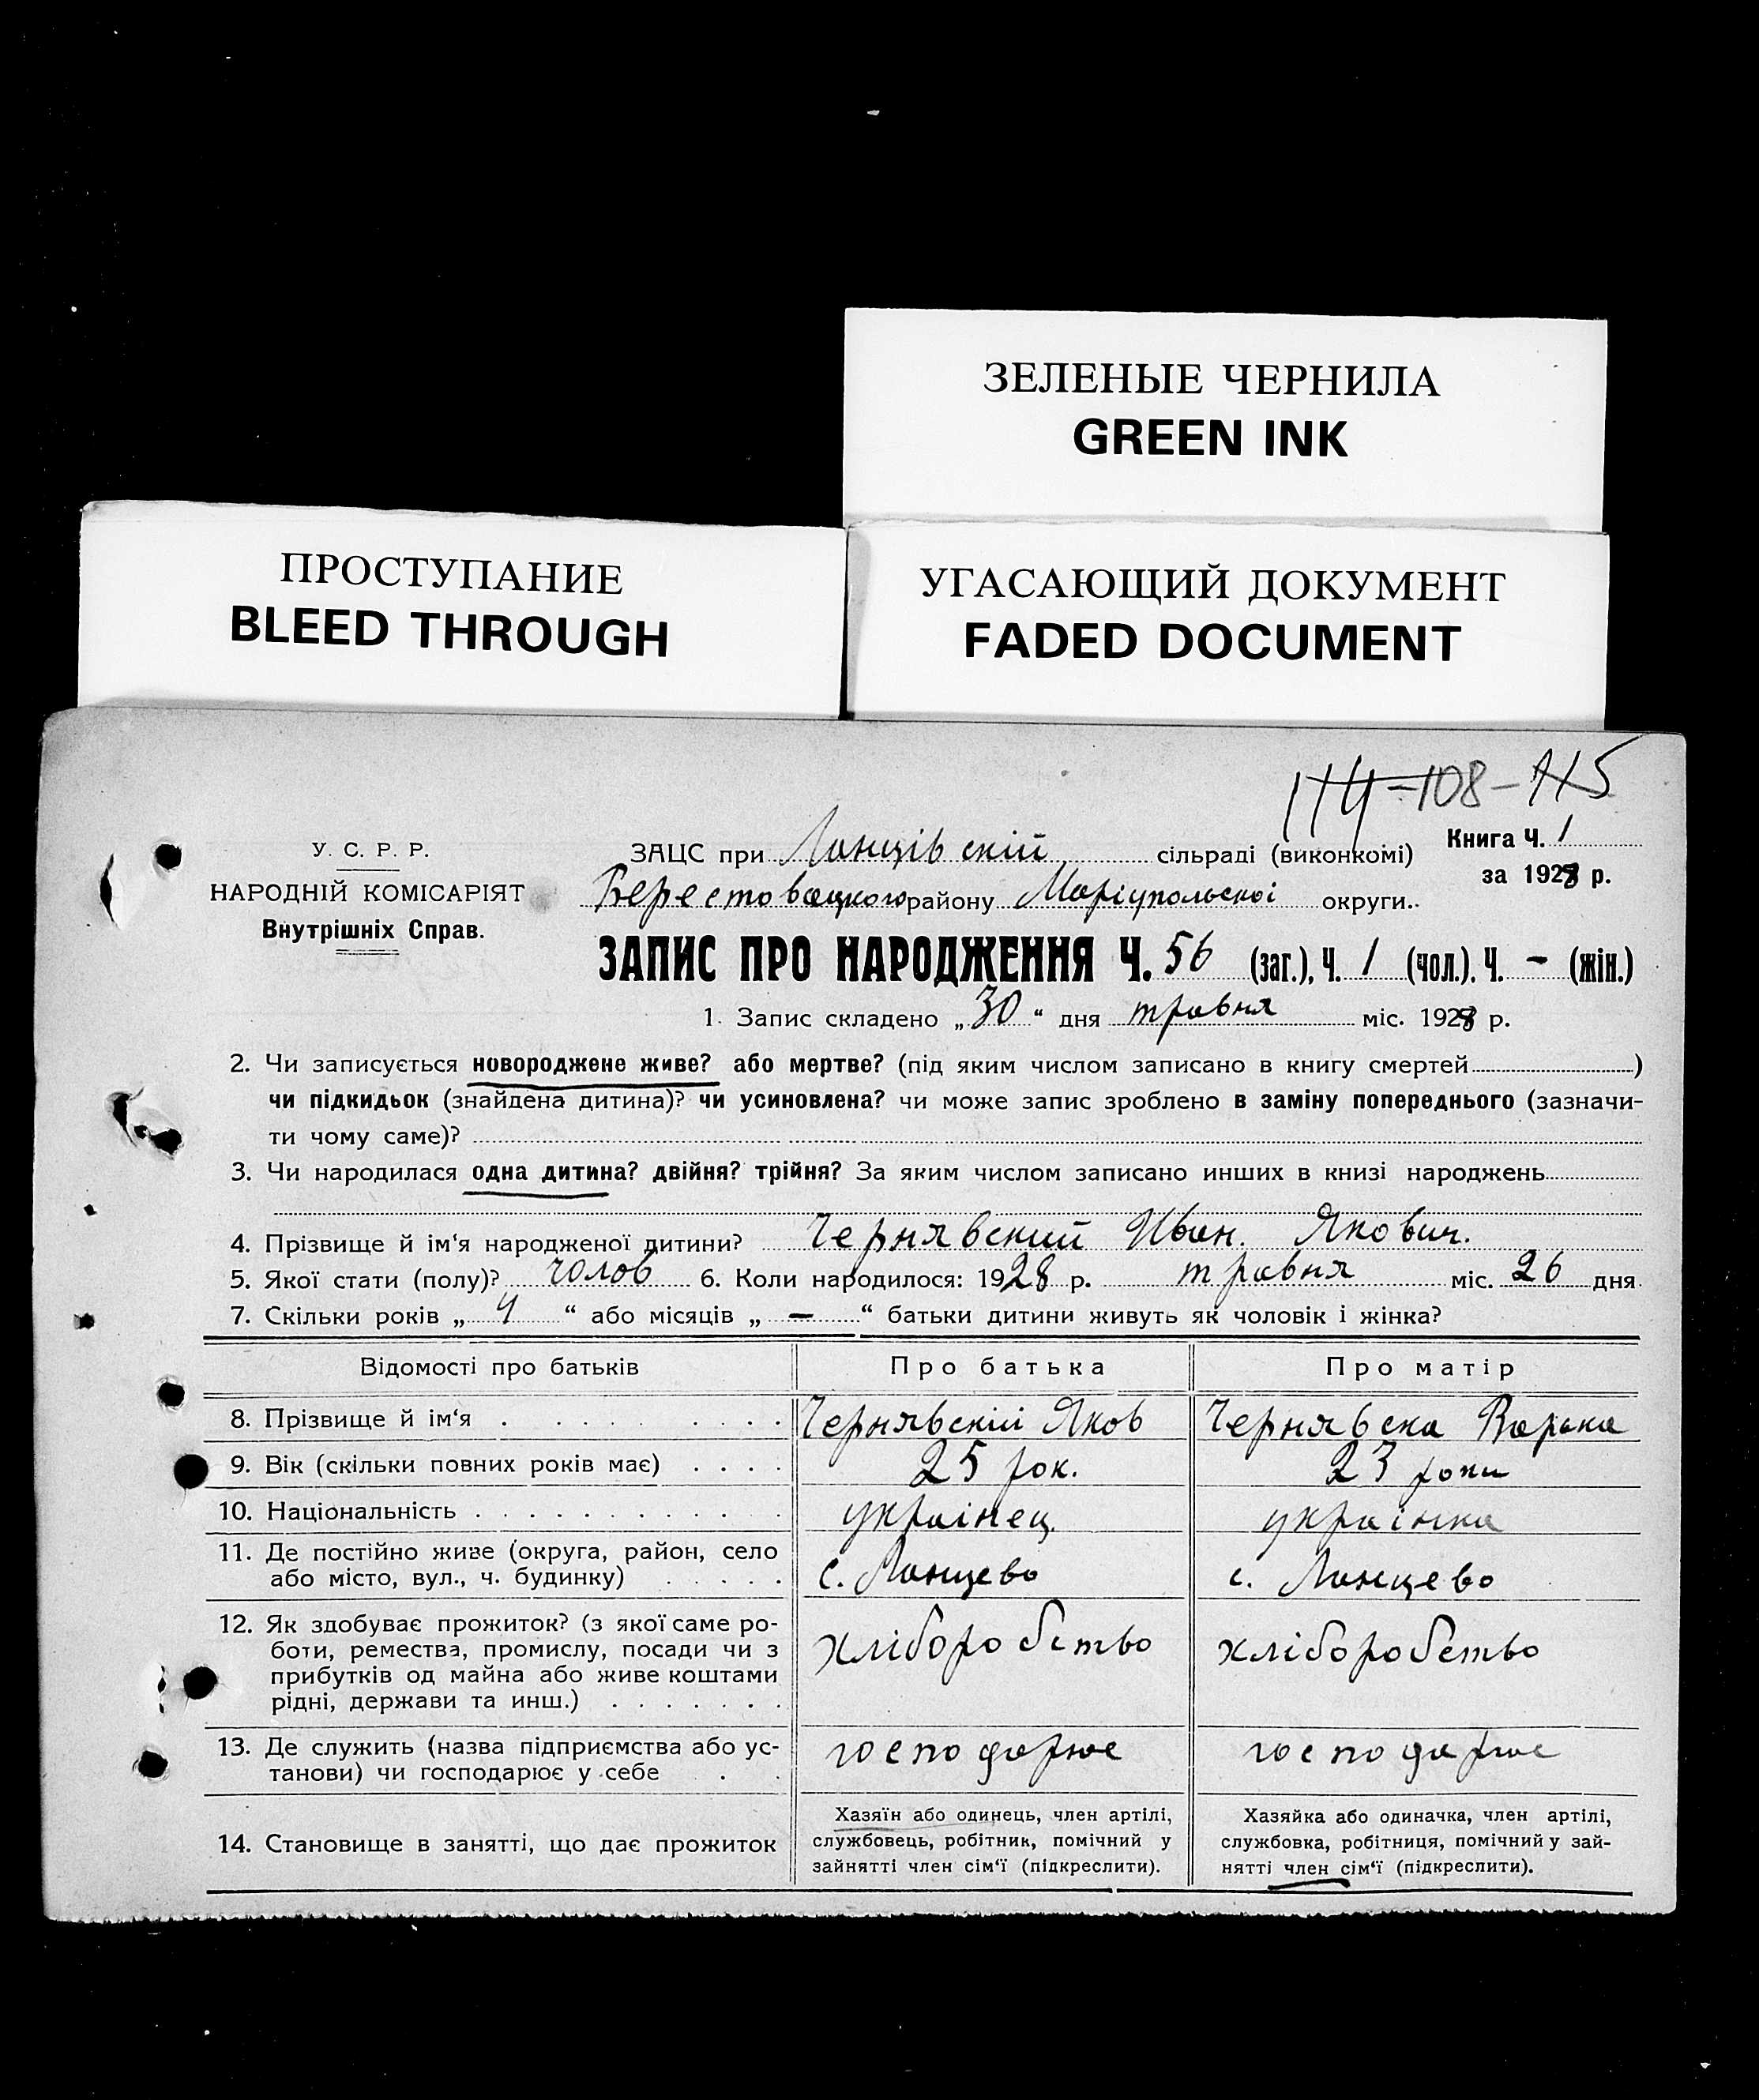 ЗЕЛЕНЫЕ ЧЕРНИЛА
GREEN INK
ПРОСТУПАНИЕ
BLEED THROUGH
УГАСАЮЩИЙ ДОКУМЕНТ
FADED DOCUMENT
114-108-115
У. С. Р. Р.
НАРОДНІЙ КОМІСАРІЯТ
Внутрішніх Справ.
ЗАЦС при Ланцівскій сільраді (виконкомі)
Книга Ч. 1
за 1928 р.
Берестовецкого району Маріупольскої округи.
ЗАПИС ПРО НАРОДЖЕННЯ Ч. 56 (заг.), Ч. 1 (чол.), Ч. - (жін.)
1. Запис складено „30“ дня травня міс. 1928 р.
2. Чи записується новороджене живе? або мертве? (під яким числом записано в книгу смертей)
чи підкидьок (знайдена дитина)? чи усиновлена? чи може запис зроблено в заміну попереднього (зазначи-
ти чому саме)?
3. Чи народилася одна дитина? двійня? трійня? За яким числом записано инших в книзі народжень
4. Прізвище й ім'я народженої дитини? Чернявский Иван. Якович.
5. Якої стати (полу)? чолов 6. Коли народилося: 1928 р. травня міс. 26 дня
7. Скільки років „4“ або місяців „—“ батьки дитини живуть як чоловік і жінка?
Відомості про батьків Про батька Про матір
8. Прізвище й ім'я Чернявскій Яков Чернявска Варька
9. Вік (скільки повних років має) 25 рок. 23 роки
10. Національність українец українка
11. Де постійно живе (округа, район, село
або місто, вул., ч. будинку) с. Ланцево с. Ланцево
12. Як здобуває прожиток? (з якої саме ро-
боти, ремества, промислу, посади чи з
прибутків од майна або живе коштами
рідні, держави та инш.) хліборобство хліборобство
13. Де служить (назва підприємства або ус-
танови) чи господарює у себе господарює господарює
14. Становище в занятті, що дає прожиток
Хазяїн або одинець, член артілі,
службовець, робітник, помічний у
зайнятті член сім'ї (підкреслити).
Хазяйка або одиначка, член артілі,
службовка, робітниця, помічний у зай-
нятті член сім'ї (підкреслити).